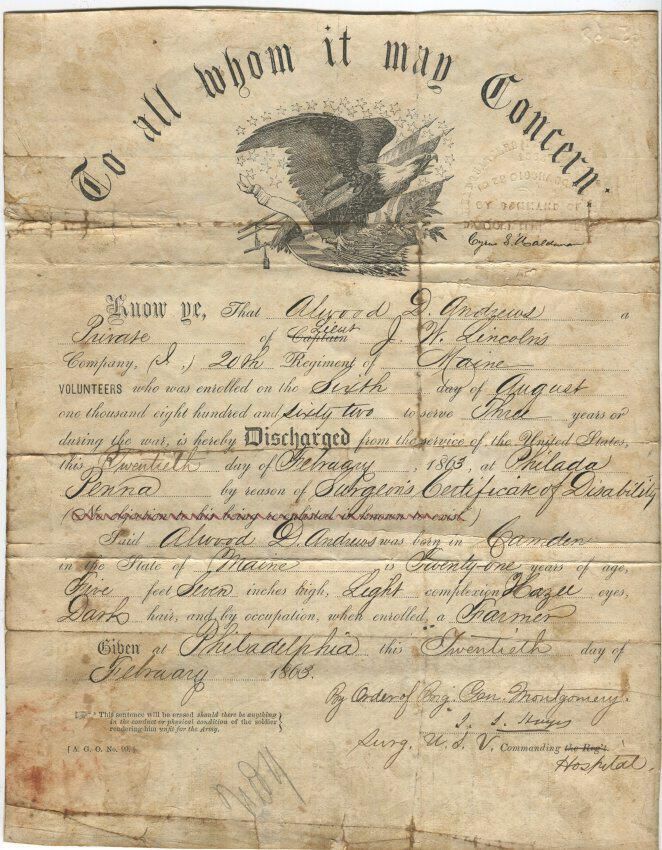 To all whom it may Concern.
Know ye, That Alwood D. Andrews a
Private of Captain Lieut J. W. Lincoln's
Company, (I,) 20th Regiment of Maine
VOLUNTEERS who was enrolled on the Sixth day of August
one thousand eight hundred and sixty two to serve Three years or
during the war, is hereby Discharged from the service of the United States,
this Twentieth day of February, 1863, at Philada
Penna by reason of Surgeon's Certificate of Disability
(No objection to his being re-enlisted is known to exist.)
Said Alwood D. Andrews was born in Camden
in the State of Maine is Twenty-one years of age,
Five feet Seven inches high, Light complexion, Hazel eyes,
Dark hair, and by occupation, when enrolled, a Farmer
Given at Philadelphia this Twentieth day of
February 1863.
By Order of Brig. Gen. Montgomery.
This sentence will be erased should there be anything
in the conduct or physical condition of the soldier
rendering him unfit for the Army.
[A. G. O. No. 99.]
Surg. U. S. V. Commanding the Reg't.
Hospital.